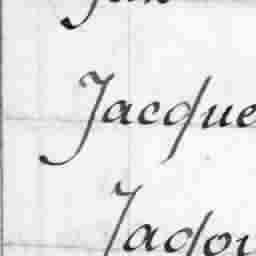 Jacque
Jadou